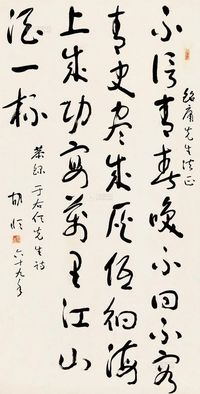 紹唐先生法正
不信青春喚不回不容
青史盡成灰低徊海
上成功宴萬里江山
酒一杯
恭録于右任先生詩
胡恒 六十九年